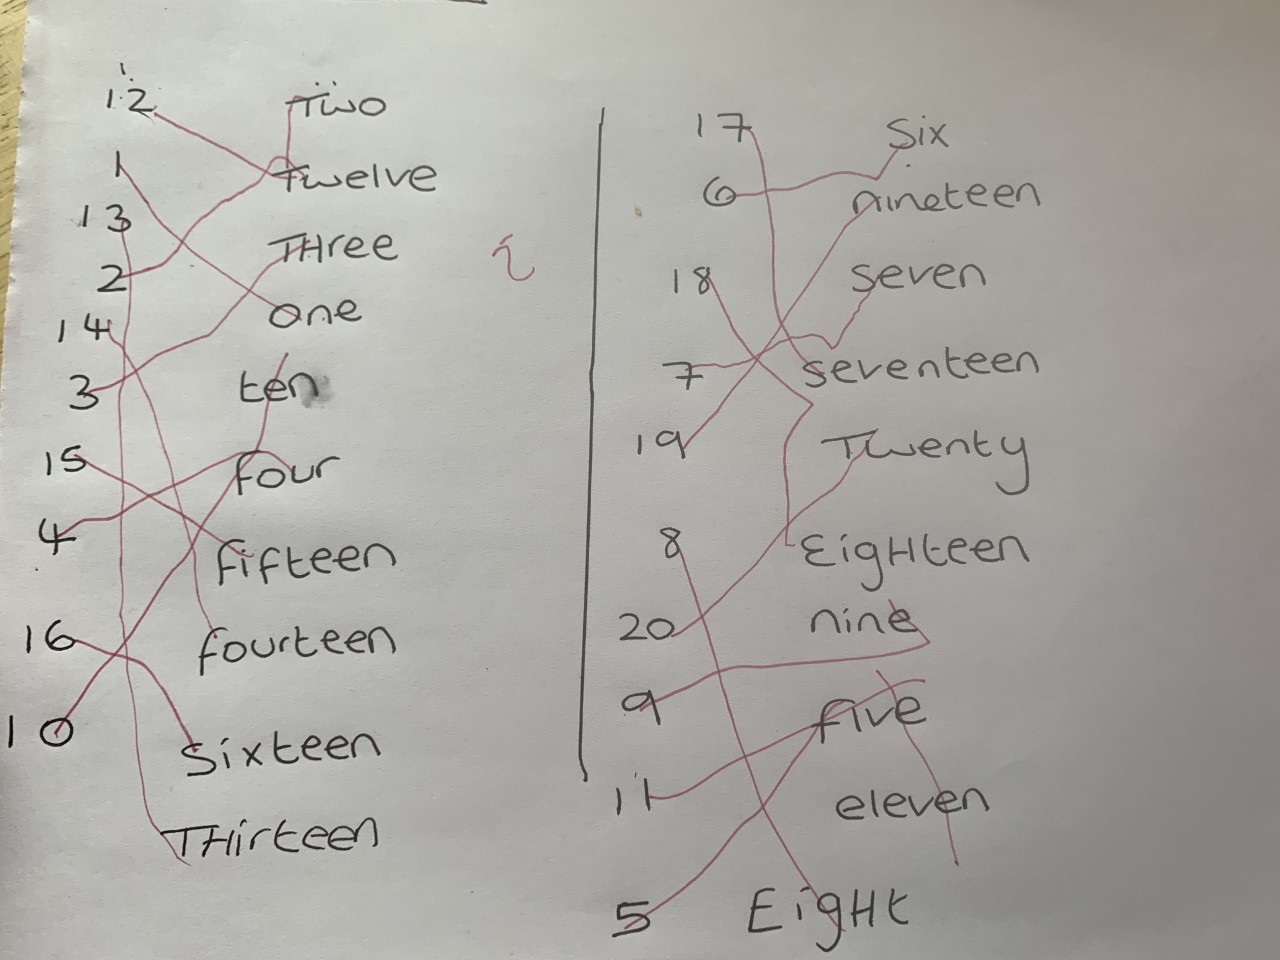 12
Two
1
Twelve
13
THree
2
one
14
ten
3
four
15
fifteen
4
fourteen
16
Sixteen
10
THirteen
i
17
Six
6
nineteen
18
seven
7
seventeen
19
Twenty
8
EigHteen
20
nine
9
five
11
eleven
5
EigHt